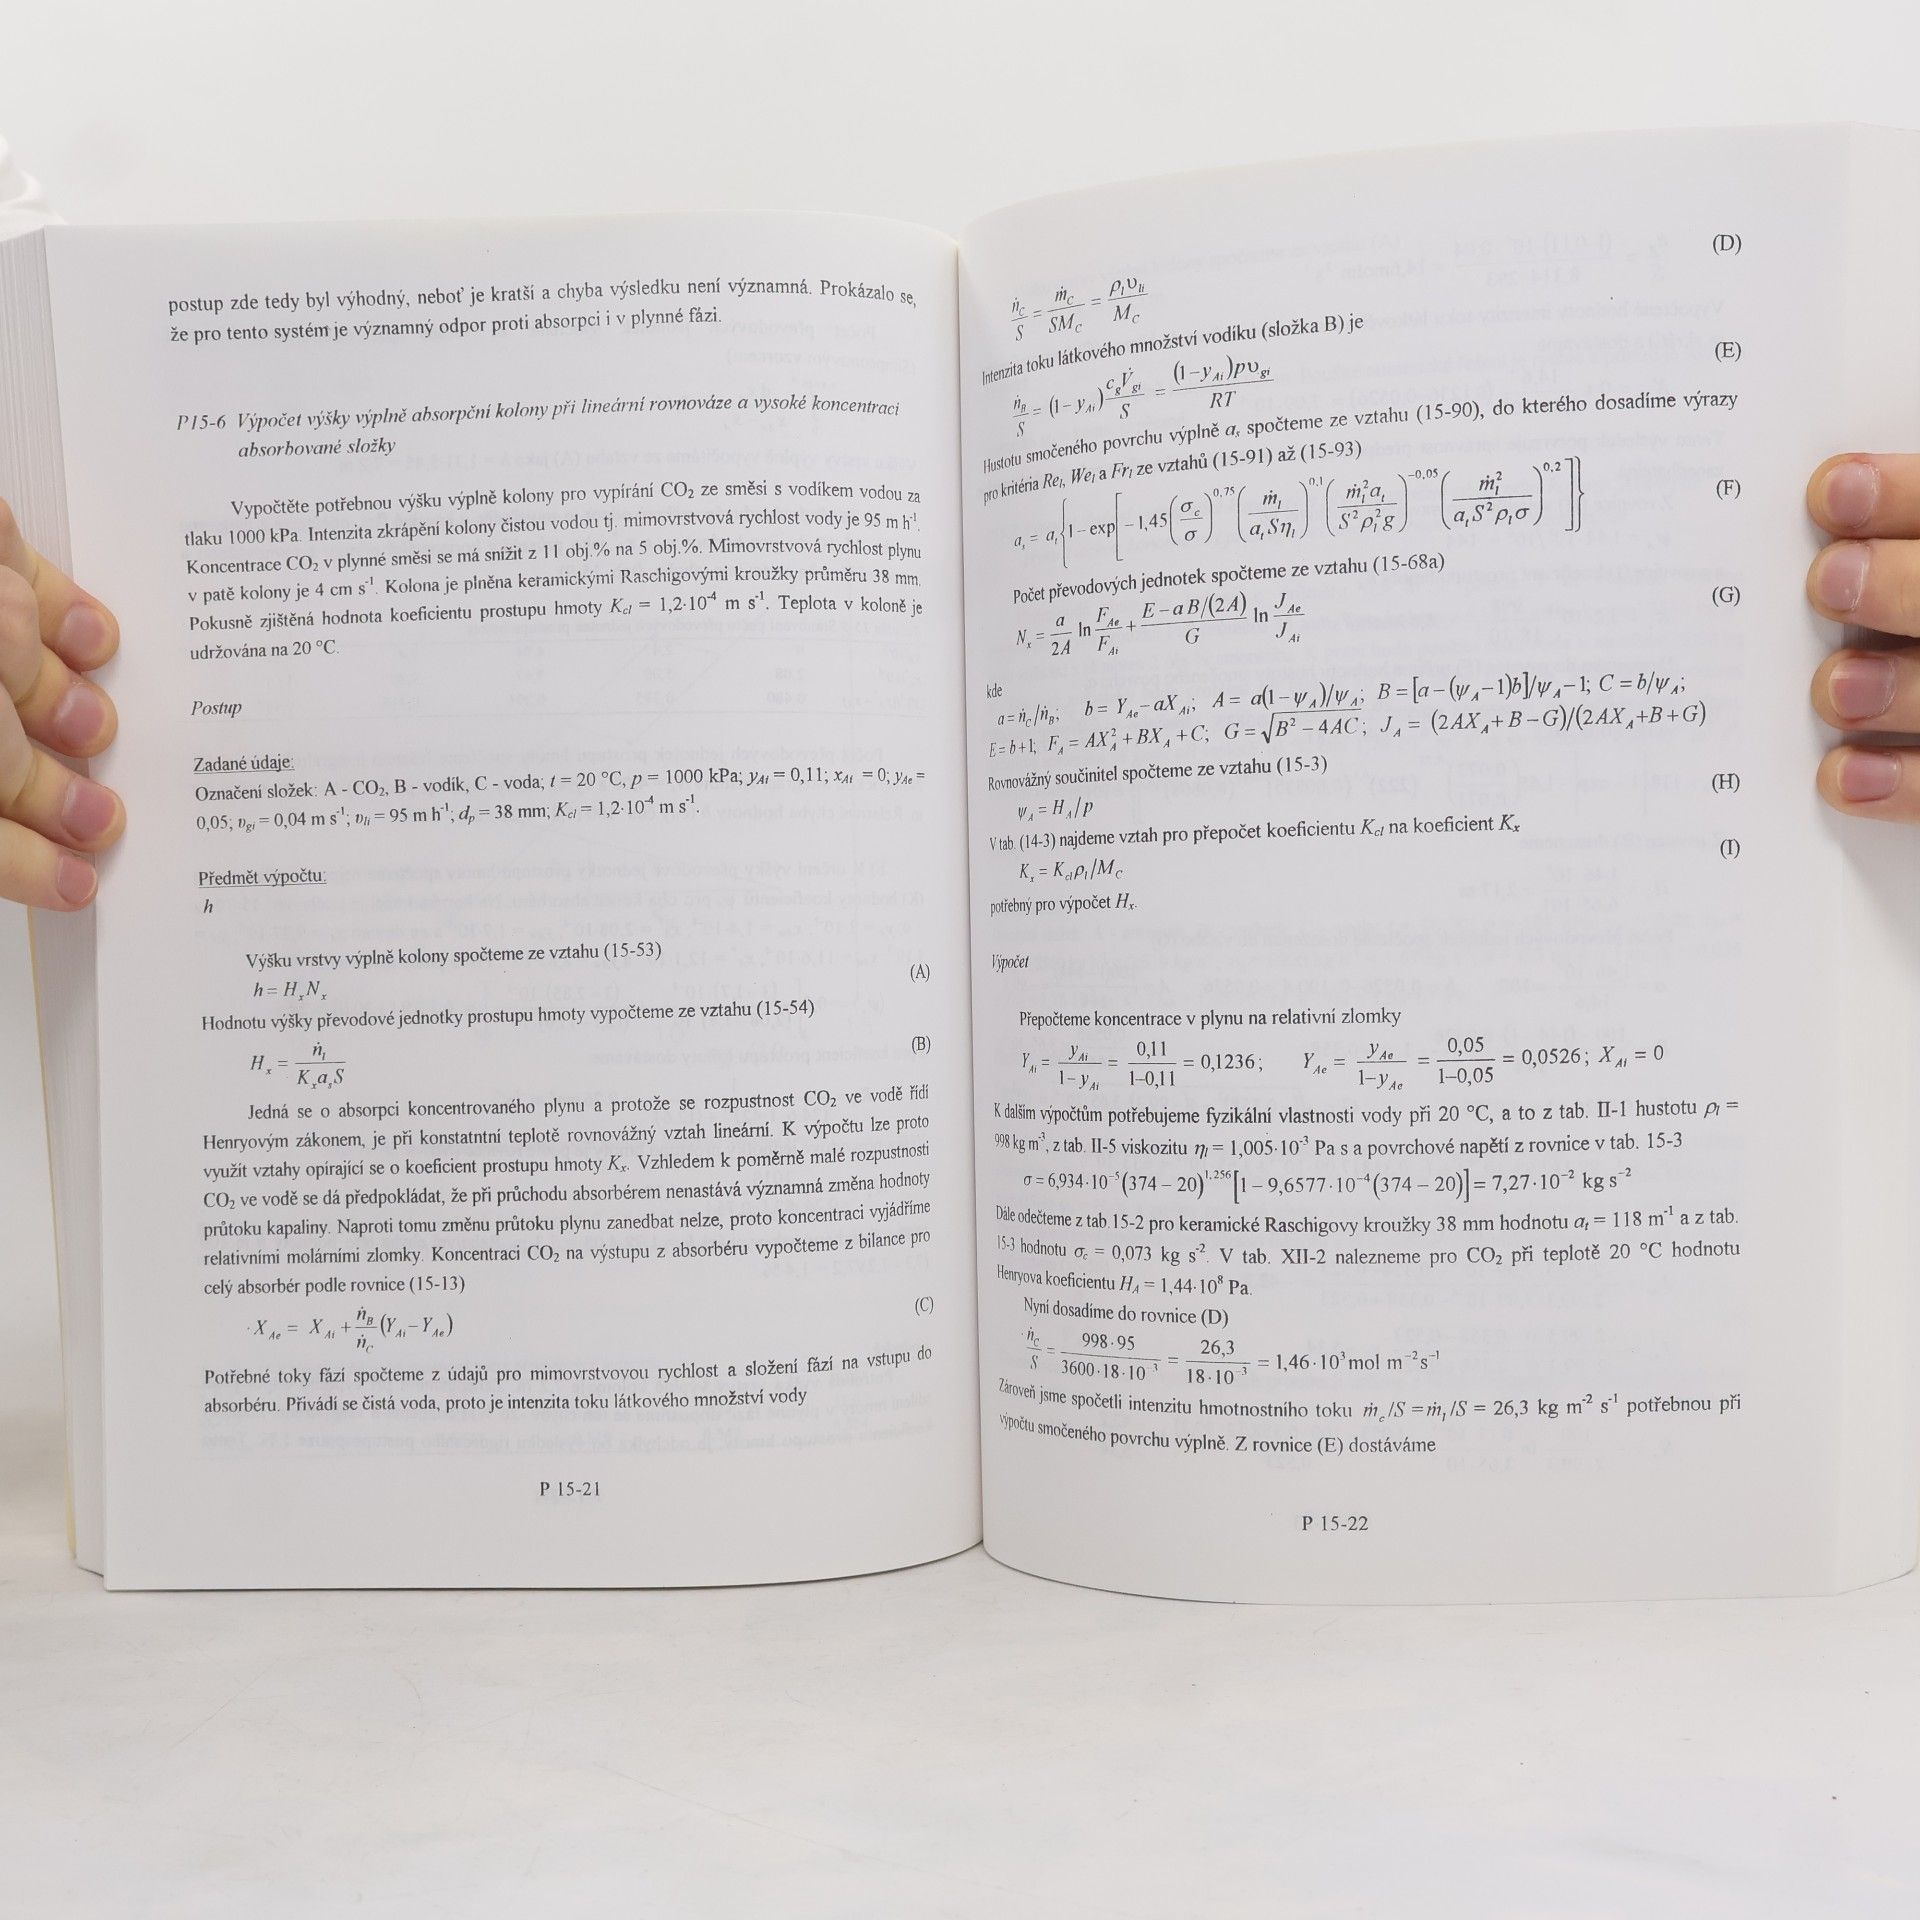 postup zde tedy byl výhodný, neboť je kratší a chyba výsledku není významná. Prokázalo se,
že pro tento systém je významný odpor proti absorpci i v plynné fázi.
P15-6 Výpočet výšky výplně absorpční kolony při lineární rovnováze a vysoké koncentraci
absorbované složky
Vypočtěte potřebnou výšku výplně kolony pro vypírání CO₂ ze směsi s vodíkem vodou za
tlaku 1000 kPa. Intenzita zkrápění kolony čistou vodou tj. mimovrstvová rychlost vody je 95 m h⁻¹.
Koncentrace CO₂ v plynné směsi se má snížit z 11 obj.% na 5 obj.%. Mimovrstvová rychlost plynu
v patě kolony je 4 cm s⁻¹. Kolona je plněna keramickými Raschigovými kroužky průměru 38 mm.
Pokusně zjištěná hodnota koeficientu prostupu hmoty K_cl = 1,2·10⁻⁴ m s⁻¹. Teplota v koloně je
udržována na 20 °C.
Postup
Zadané údaje:
Označení složek: A - CO₂, B - vodík, C - voda; t = 20 °C, p = 1000 kPa; y_Ai = 0,11; x_Ai = 0; y_Ae =
0,05; υ_gi = 0,04 m s⁻¹; υ_li = 95 m h⁻¹; d_p = 38 mm; K_cl = 1,2·10⁻⁴ m s⁻¹.
Předmět výpočtu:
h
Výšku vrstvy výplně kolony spočteme ze vztahu (15-53)
h = H_x N_x (A)
Hodnotu výšky převodové jednotky prostupu hmoty vypočteme ze vztahu (15-54)
H_x = ṅ_l / (K_x a_s S) (B)
Jedná se o absorpci koncentrovaného plynu a protože se rozpustnost CO₂ ve vodě řídí
Henryovým zákonem, je při konstatntní teplotě rovnovážný vztah lineární. K výpočtu lze proto
využít vztahy opírající se o koeficient prostupu hmoty K_x. Vzhledem k poměrně malé rozpustnosti
CO₂ ve vodě se dá předpokládat, že při průchodu absorbérem nenastává významná změna hodnoty
průtoku kapaliny. Naproti tomu změnu průtoku plynu zanedbat nelze, proto koncentraci vyjádříme
relativními molárními zlomky. Koncentraci CO₂ na výstupu z absorbéru vypočteme z bilance pro
celý absorbér podle rovnice (15-13)
X_Ae = X_Ai + ṅ_B/ṅ_C (Y_Ai − Y_Ae) (C)
Potřebné toky fází spočteme z údajů pro mimovrstvovou rychlost a složení fází na vstupu do
absorbéru. Přivádí se čistá voda, proto je intenzita toku látkového množství vody
P 15-21
ṅ_C/S = ṁ_C/(SM_C) = ρ_l υ_li/M_C (D)
Intenzita toku látkového množství vodíku (složka B) je
ṅ_B/S = (1−y_Ai) c_g V̇_gi/S = (1−y_Ai)pυ_gi/(RT) (E)
Hustotu smočeného povrchu výplně a_s spočteme ze vztahu (15-90), do kterého dosadíme výrazy
pro kritéria Re_l, We_l a Fr_l ze vztahů (15-91) až (15-93)
a_s = a_t{1−exp[−1,45(σ_c/σ)^0,75 (ṁ_l/(a_t Sη_l))^0,1 (ṁ_l² a_t/(S² ρ_l² g))^−0,05 (ṁ_l²/(a_t S² ρ_l σ))^0,2]} (F)
Počet převodových jednotek spočteme ze vztahu (15-68a)
N_x = a/(2A) ln F_Ae/F_Ai + (E−aB/(2A))/G ln J_Ae/J_Ai (G)
kde
a = ṅ_C/ṅ_B; b = Y_Ae − aX_Ai; A = a(1−ψ_A)/ψ_A; B = [a−(ψ_A−1)b]/ψ_A−1; C = b/ψ_A;
E = b+1; F_A = AX_A² + BX_A + C; G = √(B² − 4AC); J_A = (2AX_A+B−G)/(2AX_A+B+G)
Rovnovážný součinitel spočteme ze vztahu (15-3)
ψ_A = H_A/p (H)
V tab. (14-3) najdeme vztah pro přepočet koeficientu K_cl na koeficient K_x
K_x = K_cl ρ_l/M_C (I)
potřebný pro výpočet H_x.
Výpočet
Přepočteme koncentrace v plynu na relativní zlomky
Y_Ai = y_Ai/(1−y_Ai) = 0,11/(1–0,11) = 0,1236; Y_Ae = y_Ae/(1−y_Ae) = 0,05/(1–0,05) = 0,0526; X_Ai = 0
K dalším výpočtům potřebujeme fyzikální vlastnosti vody při 20 °C, a to z tab. II-1 hustotu ρ_l =
998 kg m⁻³, z tab. II-5 viskozitu η_l = 1,005·10⁻³ Pa s a povrchové napětí z rovnice v tab. 15-3
σ = 6,934·10⁻⁵(374 – 20)^1,256 [1 – 9,6577·10⁻⁴(374 – 20)] = 7,27·10⁻² kg s⁻²
Dále odečteme z tab.15-2 pro keramické Raschigovy kroužky 38 mm hodnotu a_t = 118 m⁻¹ a z tab.
15-3 hodnotu σ_c = 0,073 kg s⁻². V tab. XII-2 nalezneme pro CO₂ při teplotě 20 °C hodnotu
Henryova koeficientu H_A = 1,44·10⁸ Pa.
Nyní dosadíme do rovnice (D)
ṅ_C/S = 998·95/(3600·18·10⁻³) = 26,3/(18·10⁻³) = 1,46·10³ mol m⁻² s⁻¹
Zároveň jsme spočetli intenzitu hmotnostního toku ṁ_c/S = ṁ_l/S = 26,3 kg m⁻² s⁻¹ potřebnou při
výpočtu smočeného povrchu výplně. Z rovnice (E) dostáváme
P 15-22